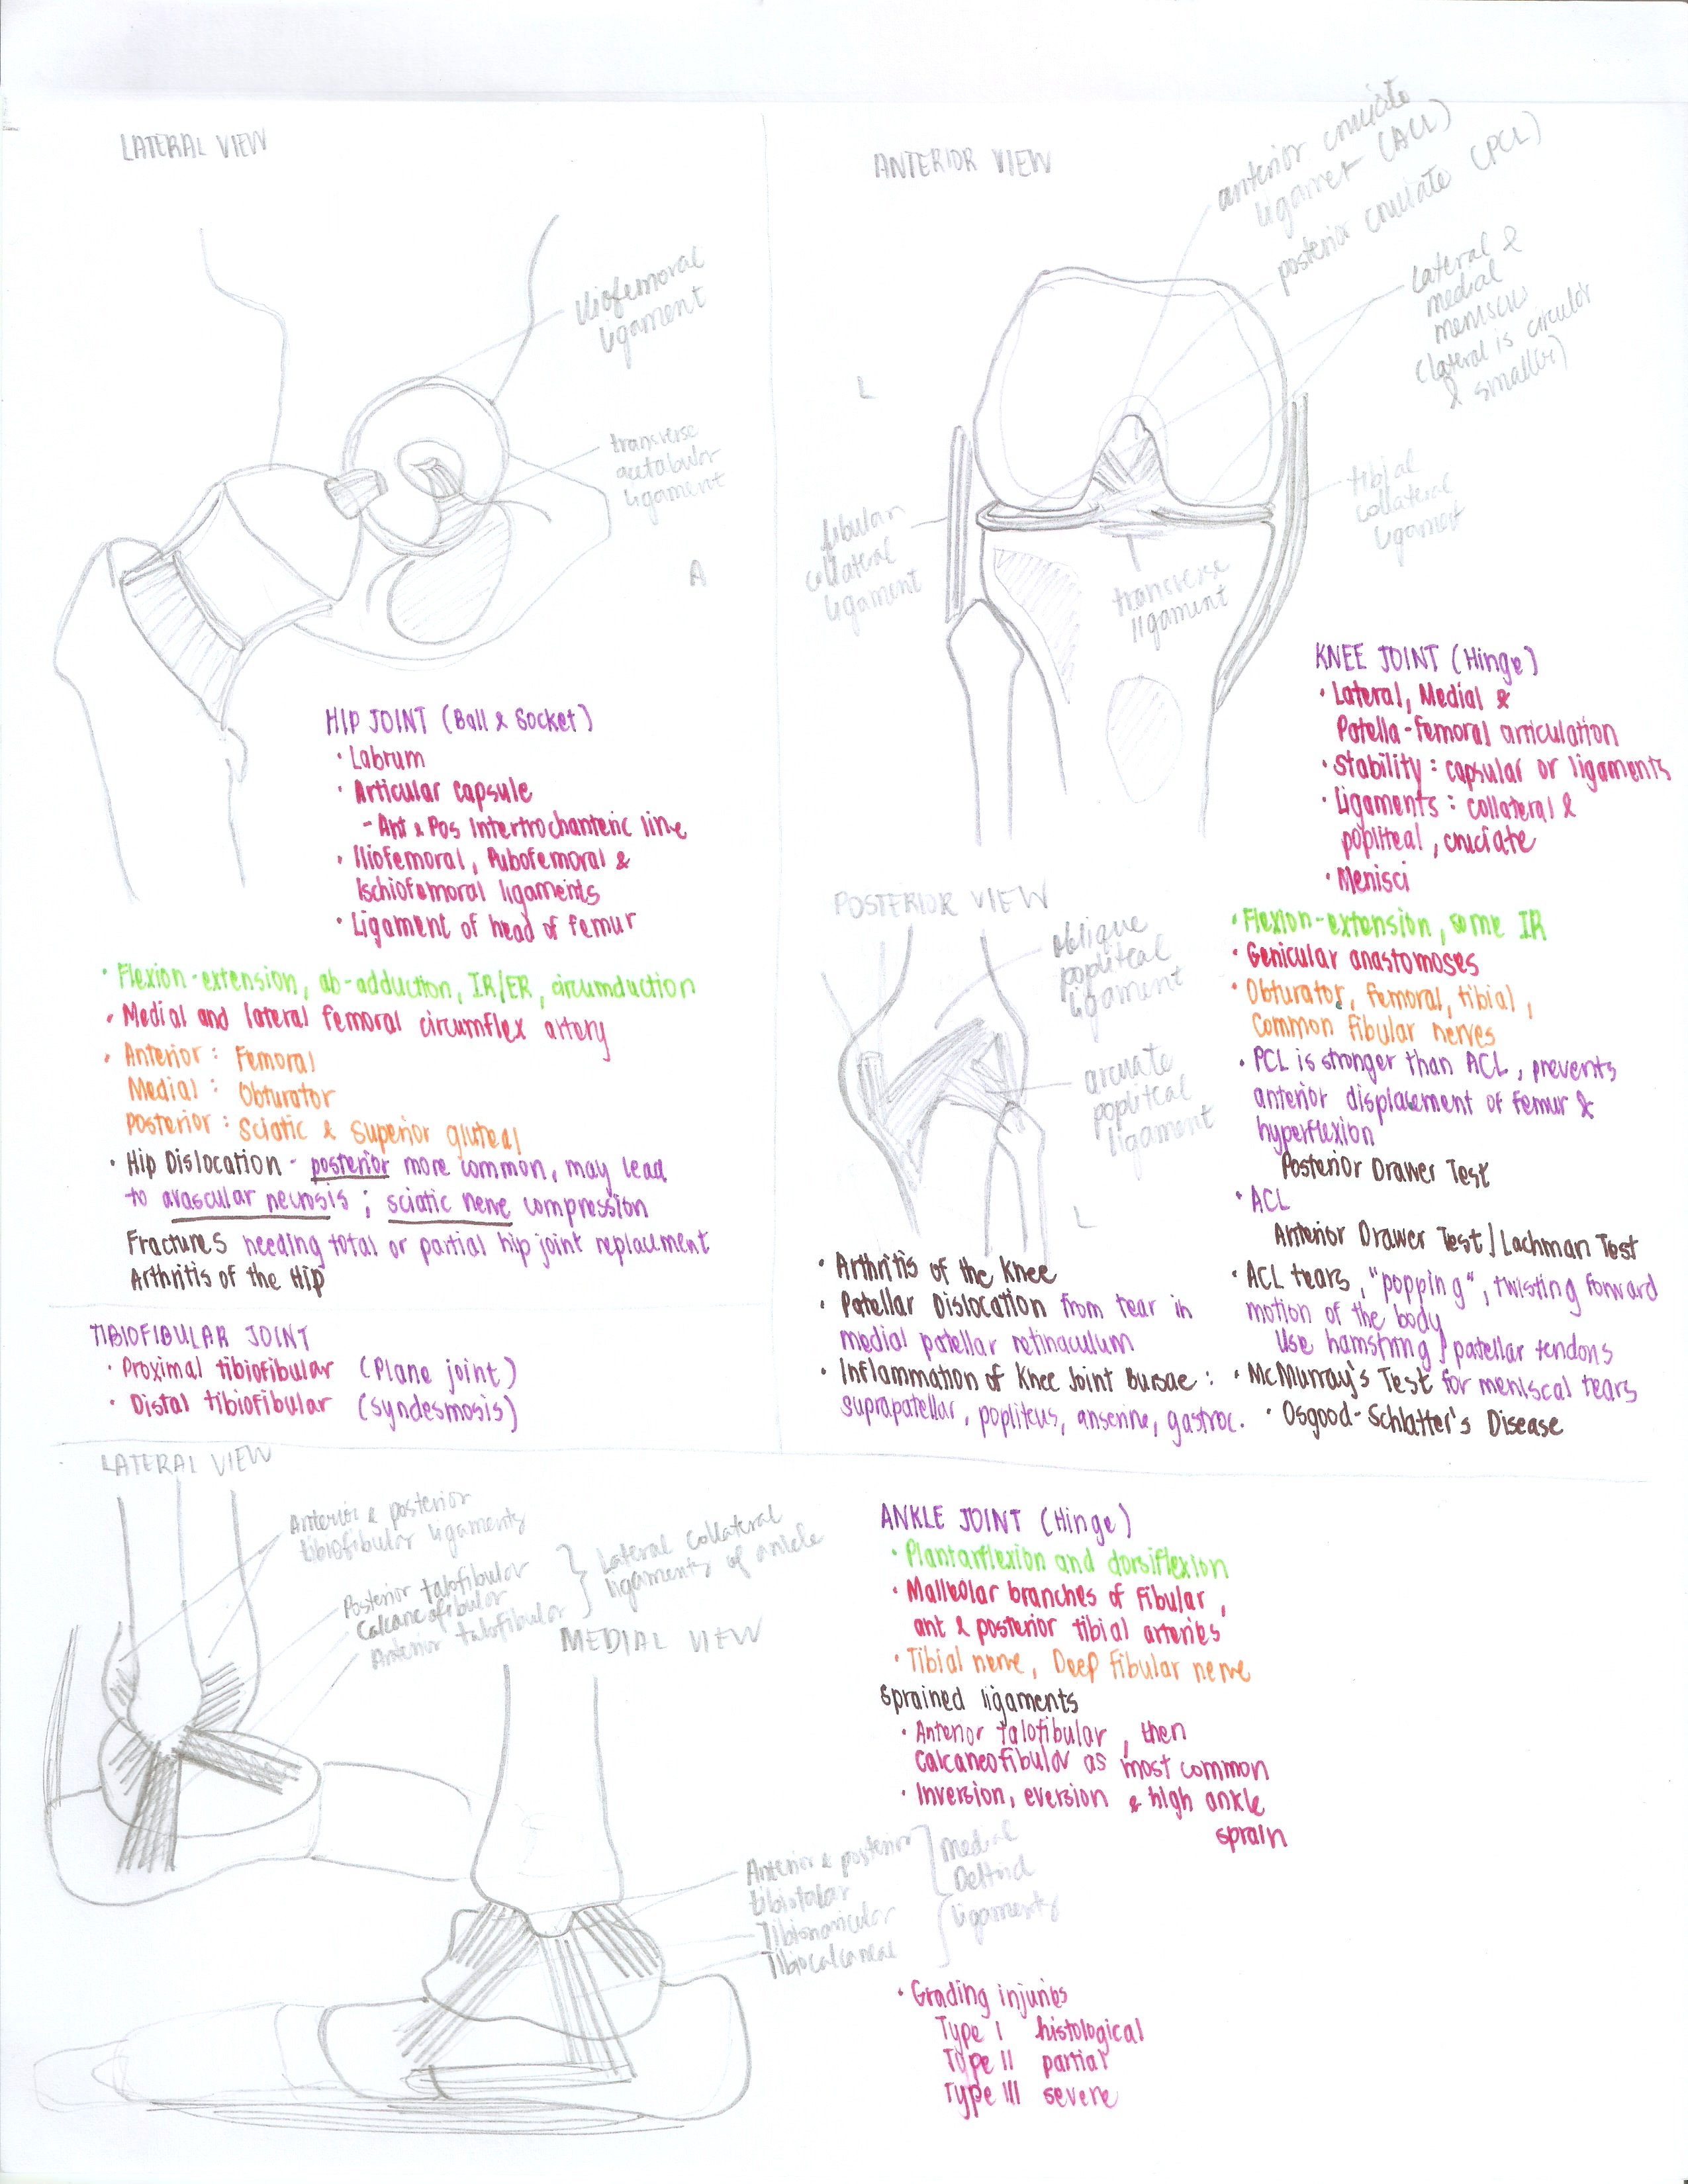 LATERAL VIEW
iliofemoral
ligament
transverse
acetabular
ligament
A
HIP JOINT (Ball & Socket)
· Labrum
· Articular capsule
- Ant & Pos Intertrochanteric line
· Iliofemoral, Pubofemoral &
Ischiofemoral ligaments
· Ligament of head of femur
· Flexion-extension, ab-adduction, IR/ER, circumduction
· Medial and lateral femoral circumflex artery
· Anterior: Femoral
Medial: Obturator
Posterior: Sciatic & superior gluteal
· Hip Dislocation - posterior more common, may lead
to avascular necrosis; sciatic nerve compression
Fractures needing total or partial hip joint replacement
Arthritis of the Hip
TIBIOFIBULAR JOINT
· Proximal tibiofibular (Plane joint)
· Distal tibiofibular (syndesmosis)
ANTERIOR VIEW
anterior cruciate
ligamet (ACL)
posterior cruciate (PCL)
lateral &
medial
meniscus
(lateral is circular
& smaller)
L
fibular
collateral
ligament
tibial
collateral
ligament
transverse
ligament
KNEE JOINT (Hinge)
· Lateral, Medial &
Patella-femoral articulation
· Stability: capsular or ligaments
· Ligaments: collateral &
popliteal, cruciate
· Menisci
· Flexion-extension, some IR
· Genicular anastomoses
· Obturator, femoral, tibial,
common fibular nerves
· PCL is stronger than ACL, prevents
anterior displacement of femur &
hyperflexion
Posterior Drawer Test
· ACL
Anterior Drawer Test/Lachman Test
· ACL tears, "popping", twisting forward
motion of the body
Use hamstring/patellar tendons
· McMurray's Test for meniscal tears
· Osgood-Schlatter's Disease
POSTERIOR VIEW
oblique
popliteal
ligament
arcuate
popliteal
ligament
L
· Arthritis of the Knee
· Patellar Dislocation from tear in
medial patellar retinaculum
· Inflammation of Knee Joint Bursae:
suprapatellar, popliteus, anserine, gastroc.
LATERAL VIEW
Anterior & posterior
tibiofibular ligaments
Posterior talofibular
Calcaneofibular
Anterior talofibular
Lateral collateral
ligaments of ankle
MEDIAL VIEW
Anterior & posterior
tibiotalar
Tibionavicular
Tibiocalcaneal
Medial
Deltoid
ligaments
ANKLE JOINT (Hinge)
· Plantarflexion and dorsiflexion
· Malleolar branches of fibular,
ant & posterior tibial arteries
· Tibial nerve, Deep fibular nerve
Sprained ligaments
· Anterior talofibular, then
calcaneofibular as most common
· Inversion, eversion & high ankle
sprain
· Grading injuries
Type I histological
Type II partial
Type III severe